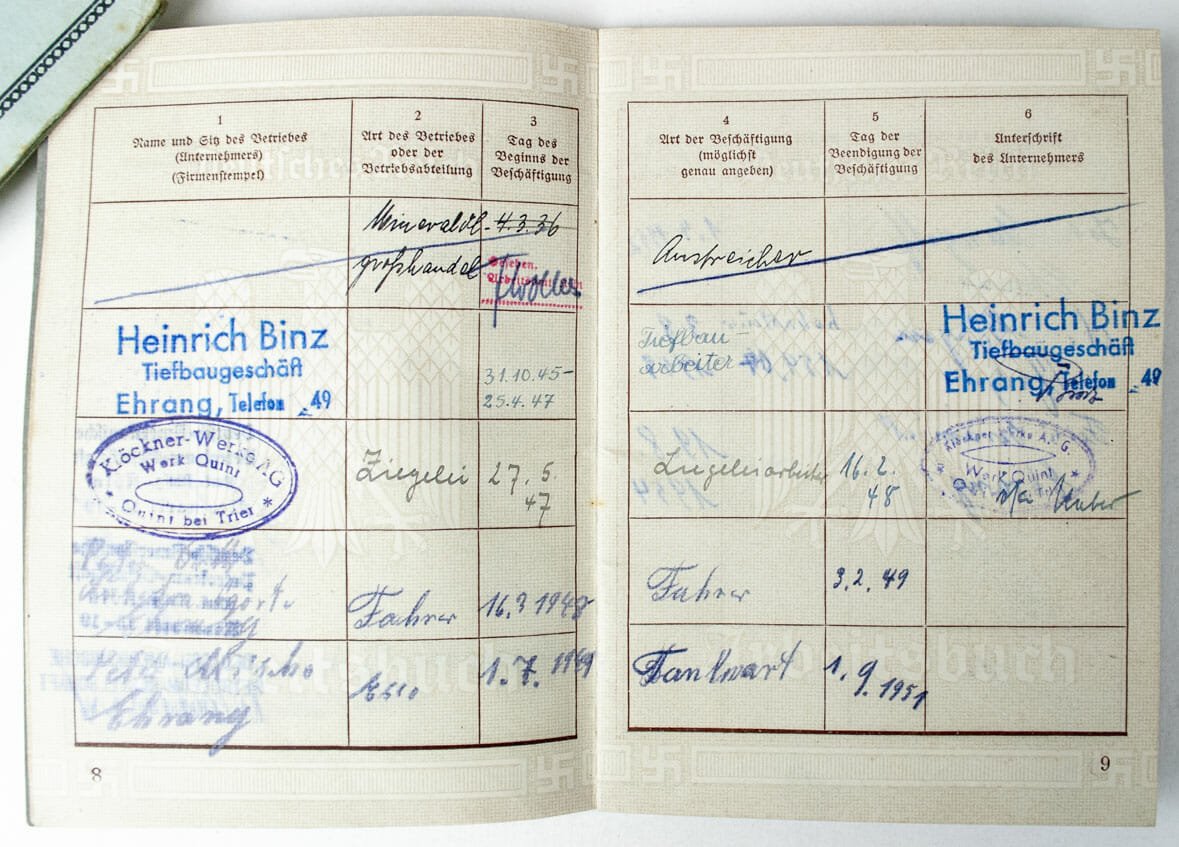 1
Name und Sitz des Betriebes
(Unternehmers)
(Firmenstempel)
2
Art des Betriebes
oder der
Betriebsabteilung
3
Tag des
Beginns der
Beschäftigung
Mineralöl-
großhandel
4.3.36
Heinrich Binz
Tiefbaugeschäft
Ehrang, Telefon 49
31.10.45-
25.4.47
Klöckner-Werke A.G
Werk Quint
Quint bei Trier
Ziegelei
27.5.
47
Fahrer
16.3 1948
Esso
1.7.1949
Ehrang
8
4
Art der Beschäftigung
(möglichst
genau angeben)
5
Tag der
Beendigung der
Beschäftigung
6
Unterschrift
des Unternehmers
Anstreicher
Tiefbau-
arbeiter
Heinrich Binz
Tiefbaugeschäft
Ehrang, Telefon 49
Ziegeleiarbeiter
16.2.
48
Klöckner-Werke A.G.
Werk Quint
Fahrer
3.2.49
Tankwart
1.9.1951
9